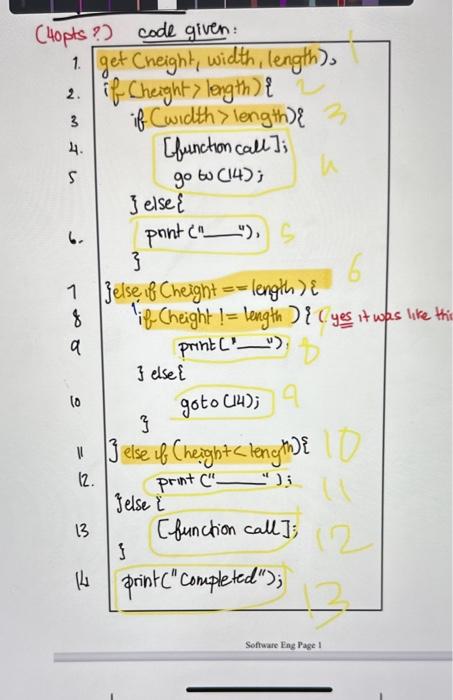 (40pts?) code given:
1. get (height, width, length); 1
2. if (height > length) { 2
3 if (width > length) { 3
4. [function call];
5 go to (14); 4
} else {
6. print ("___"); 5
}
7 } else if (height == length) { 6
8 if (height != length) { (yes it was like this 7
9 print ("___"); 8
} else {
10 goto (14); 9
}
11 } else if (height < length) { 10
12. print ("___"); 11
} else {
13 [function call]; 12
}
14 print("Completed"); 13
Software Eng Page 1